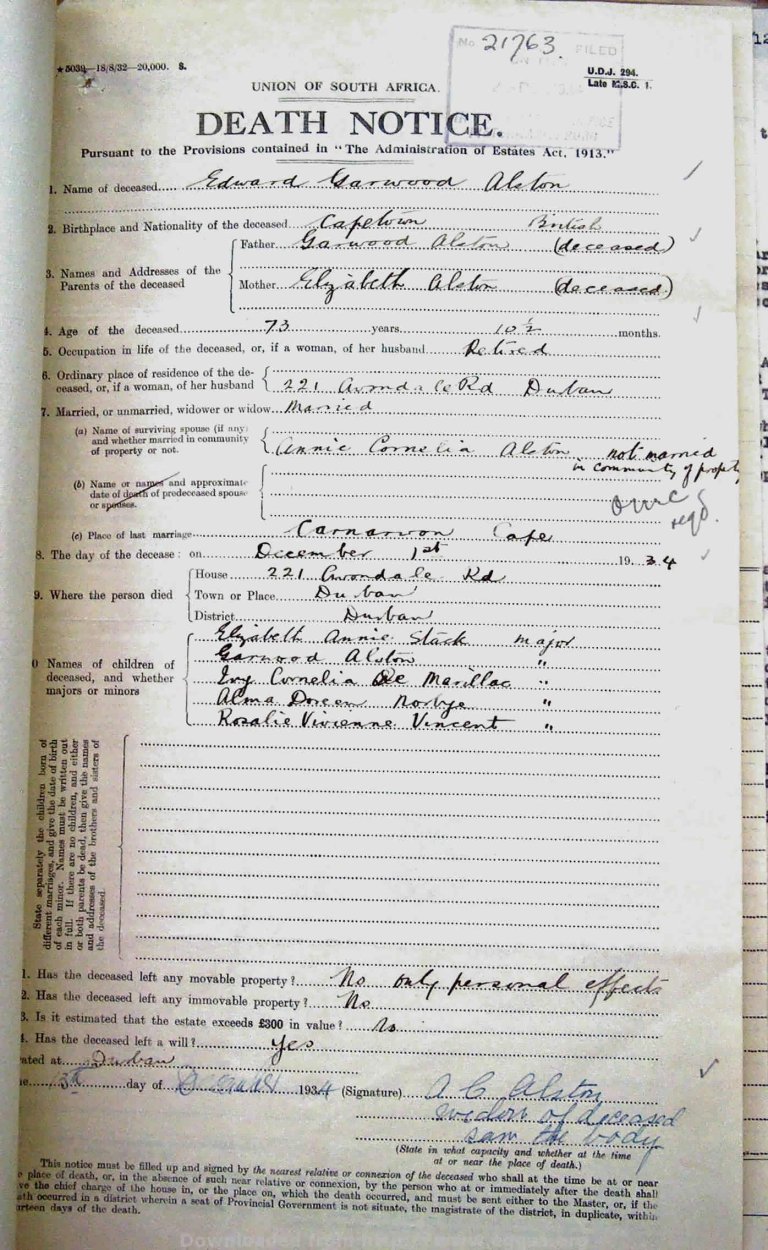 ★5039—18/8/32—20,000. S.
No 21763. FILED
U.D.J. 294.
Late M.S.C. 1.
UNION OF SOUTH AFRICA.
DEATH NOTICE.
Pursuant to the Provisions contained in "The Administration of Estates Act, 1913."
1. Name of deceased Edward Garwood Alston
2. Birthplace and Nationality of the deceased Capetown British
3. Names and Addresses of the Parents of the deceased
Father Garwood Alston (deceased)
Mother Elizabeth Alston (deceased)
4. Age of the deceased 73 years 10½ months.
5. Occupation in life of the deceased, or, if a woman, of her husband Retired
6. Ordinary place of residence of the de-
ceased, or, if a woman, of her husband 221 Avondale Rd Durban
7. Married, or unmarried, widower or widow Married
(a) Name of surviving spouse (if any)
and whether married in community
of property or not.
Annie Cornelia Alston not married
in community of property
(b) Name or names and approximate
date of death of predeceased spouse
or spouses.
reqd.
(c) Place of last marriage Carnarvon Cape
8. The day of the decease: on December 1st 1934
9. Where the person died
House 221 Avondale Rd
Town or Place Durban
District Durban
0 Names of children of
deceased, and whether
majors or minors
Elizabeth Annie Stack major
Garwood Alston "
Ivy Cornelia De Marillac "
Alma Doreen Norbye "
Rosalie Vivienne Vincent "
State separately the children born of
different marriages, and give the date of birth
of each minor. Names must be written out
in full. If there are no children, and either
or both parents be dead, then give the names
and addresses of the brothers and sisters of
the deceased.
1. Has the deceased left any movable property? No only personal effects
2. Has the deceased left any immovable property? No
3. Is it estimated that the estate exceeds £300 in value? No
4. Has the deceased left a will? Yes
ated at Durban
e 13th day of December 1934 (Signature) A C Alston
widow of deceased
saw the body
(State in what capacity and whether at the time
at or near the place of death.)
This notice must be filled up and signed by the nearest relative or connexion of the deceased who shall at the time be at or near
e place of death, or, in the absence of such near relative or connexion, by the person who at or immediately after the death shall
ve the chief charge of the house in, or the place on, which the death occurred, and must be sent either to the Master, or, if the
ath occurred in a district wherein a seat of Provincial Government is not situate, the magistrate of the district, in duplicate, within
urteen days of the death.